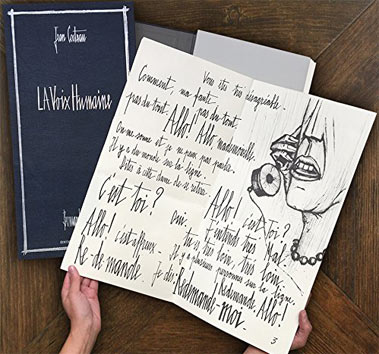 Jean Cocteau
LA Voix Humaine
Vous êtes très désagréable.
Comment, ma faute
pas du tout. pas du tout
Allô! Allô, mademoiselle
On me sonne et je ne peux pas parler.
Il y a du monde sur la ligne.
Dites à cette dame de se retirer
c'est toi?
Allô! c'est affreux
Re-demande
je dis
Oui,
Allô! c'est toi?
J'entends très Mal.
tu es très loin, très loin.
Il y a plusieurs personnes sur la ligne.
Redemande. Allô!
Redemande-moi.
3